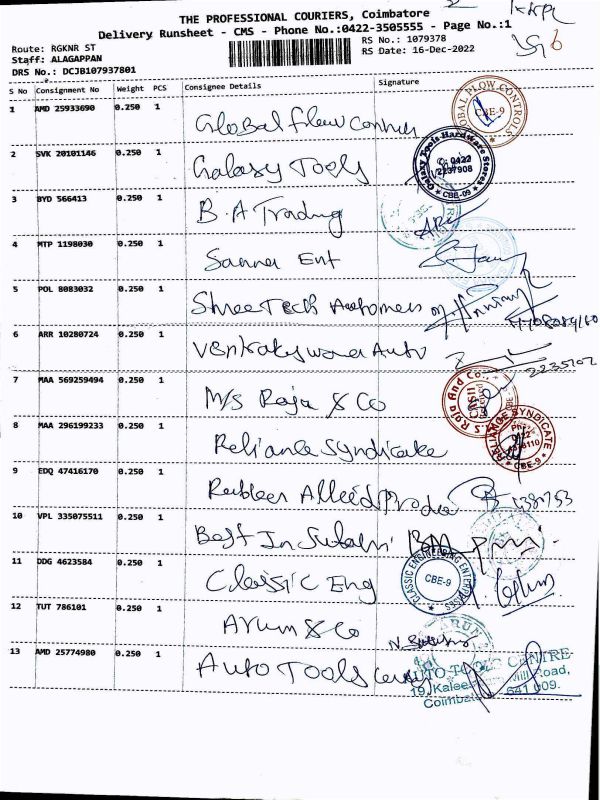 THE PROFESSIONAL COURIERS, Coimbatore
Delivery Runsheet - CMS - Phone No.:0422-3505555 - Page No.:1
Route: RGKNR ST
RS No.: 1079378
Staff: ALAGAPPAN
RS Date: 16-Dec-2022
DRS No.: DCJB107937801
S No Consignment No Weight PCS Consignee Details Signature
1 AMD 25933690 0.250 1 Global flow
GLOBAL FLOW CONTROLS CBE-9
2 SVK 20101146 0.250 1 Galaxy Tools
Galaxy Tools Hardware Stores 0422 2237908 CBE-09
3 BYD 566413 0.250 1 B.A Trading
4 MTP 1198030 0.250 1 Ent
5 POL 8083032 0.250 1 Shree Tech
6 ARR 10280724 0.250 1 Auto
2235102
7 MAA 569259494 0.250 1 M/s Raja & Co
8 MAA 296199233 0.250 1 Reliance Syndicate
RELIANCE SYNDICATE CBE-9
9 EDQ 47416170 0.250 1
10 VPL 335075511 0.250 1 Best In
11 DDG 4623584 0.250 1 Classic Eng
CLASSIC ENGINEERING ENTERPRISES CBE-9
12 TUT 786101 0.250 1 Arun & Co
13 AMD 25774980 0.250 1 Auto Tools
AUTO TOOLS CENTRE
Mill Road,
641 009.